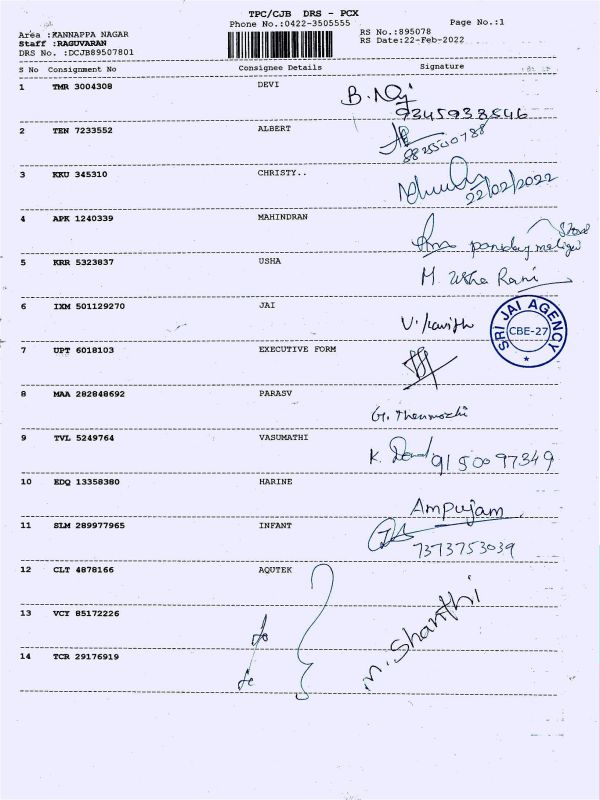 TPC/CJB DRS - PCX
Phone No.:0422-3505555
Page No.:1
Area :KANNAPPA NAGAR
RS No.:895078
Staff :RAGUVARAN
RS Date:22-Feb-2022
DRS No. :DCJB89507801
S No Consignment No Consignee Details Signature
1 TMR 3004308 DEVI
9345938546
2 TEN 7233552 ALBERT
8825500788
3 KKU 345310 CHRISTY..
22/02/2022
4 APK 1240339 MAHINDRAN
5 KRR 5323837 USHA
M. Usha Rani
6 IXM 501129270 JAI
V. Kavith
SRI JAI AGENCY
CBE-27
7 UPT 6018103 EXECUTIVE FORM
8 MAA 282848692 PARASV
G. Thenmozhi
9 TVL 5249764 VASUMATHI
K. 9150097349
10 EDQ 13358380 HARINE
Ampujam
11 SLM 289977965 INFANT
7373753039
12 CLT 4878166 AQUTEK
13 VCY 85172226
M. Shanthi
14 TCR 29176919